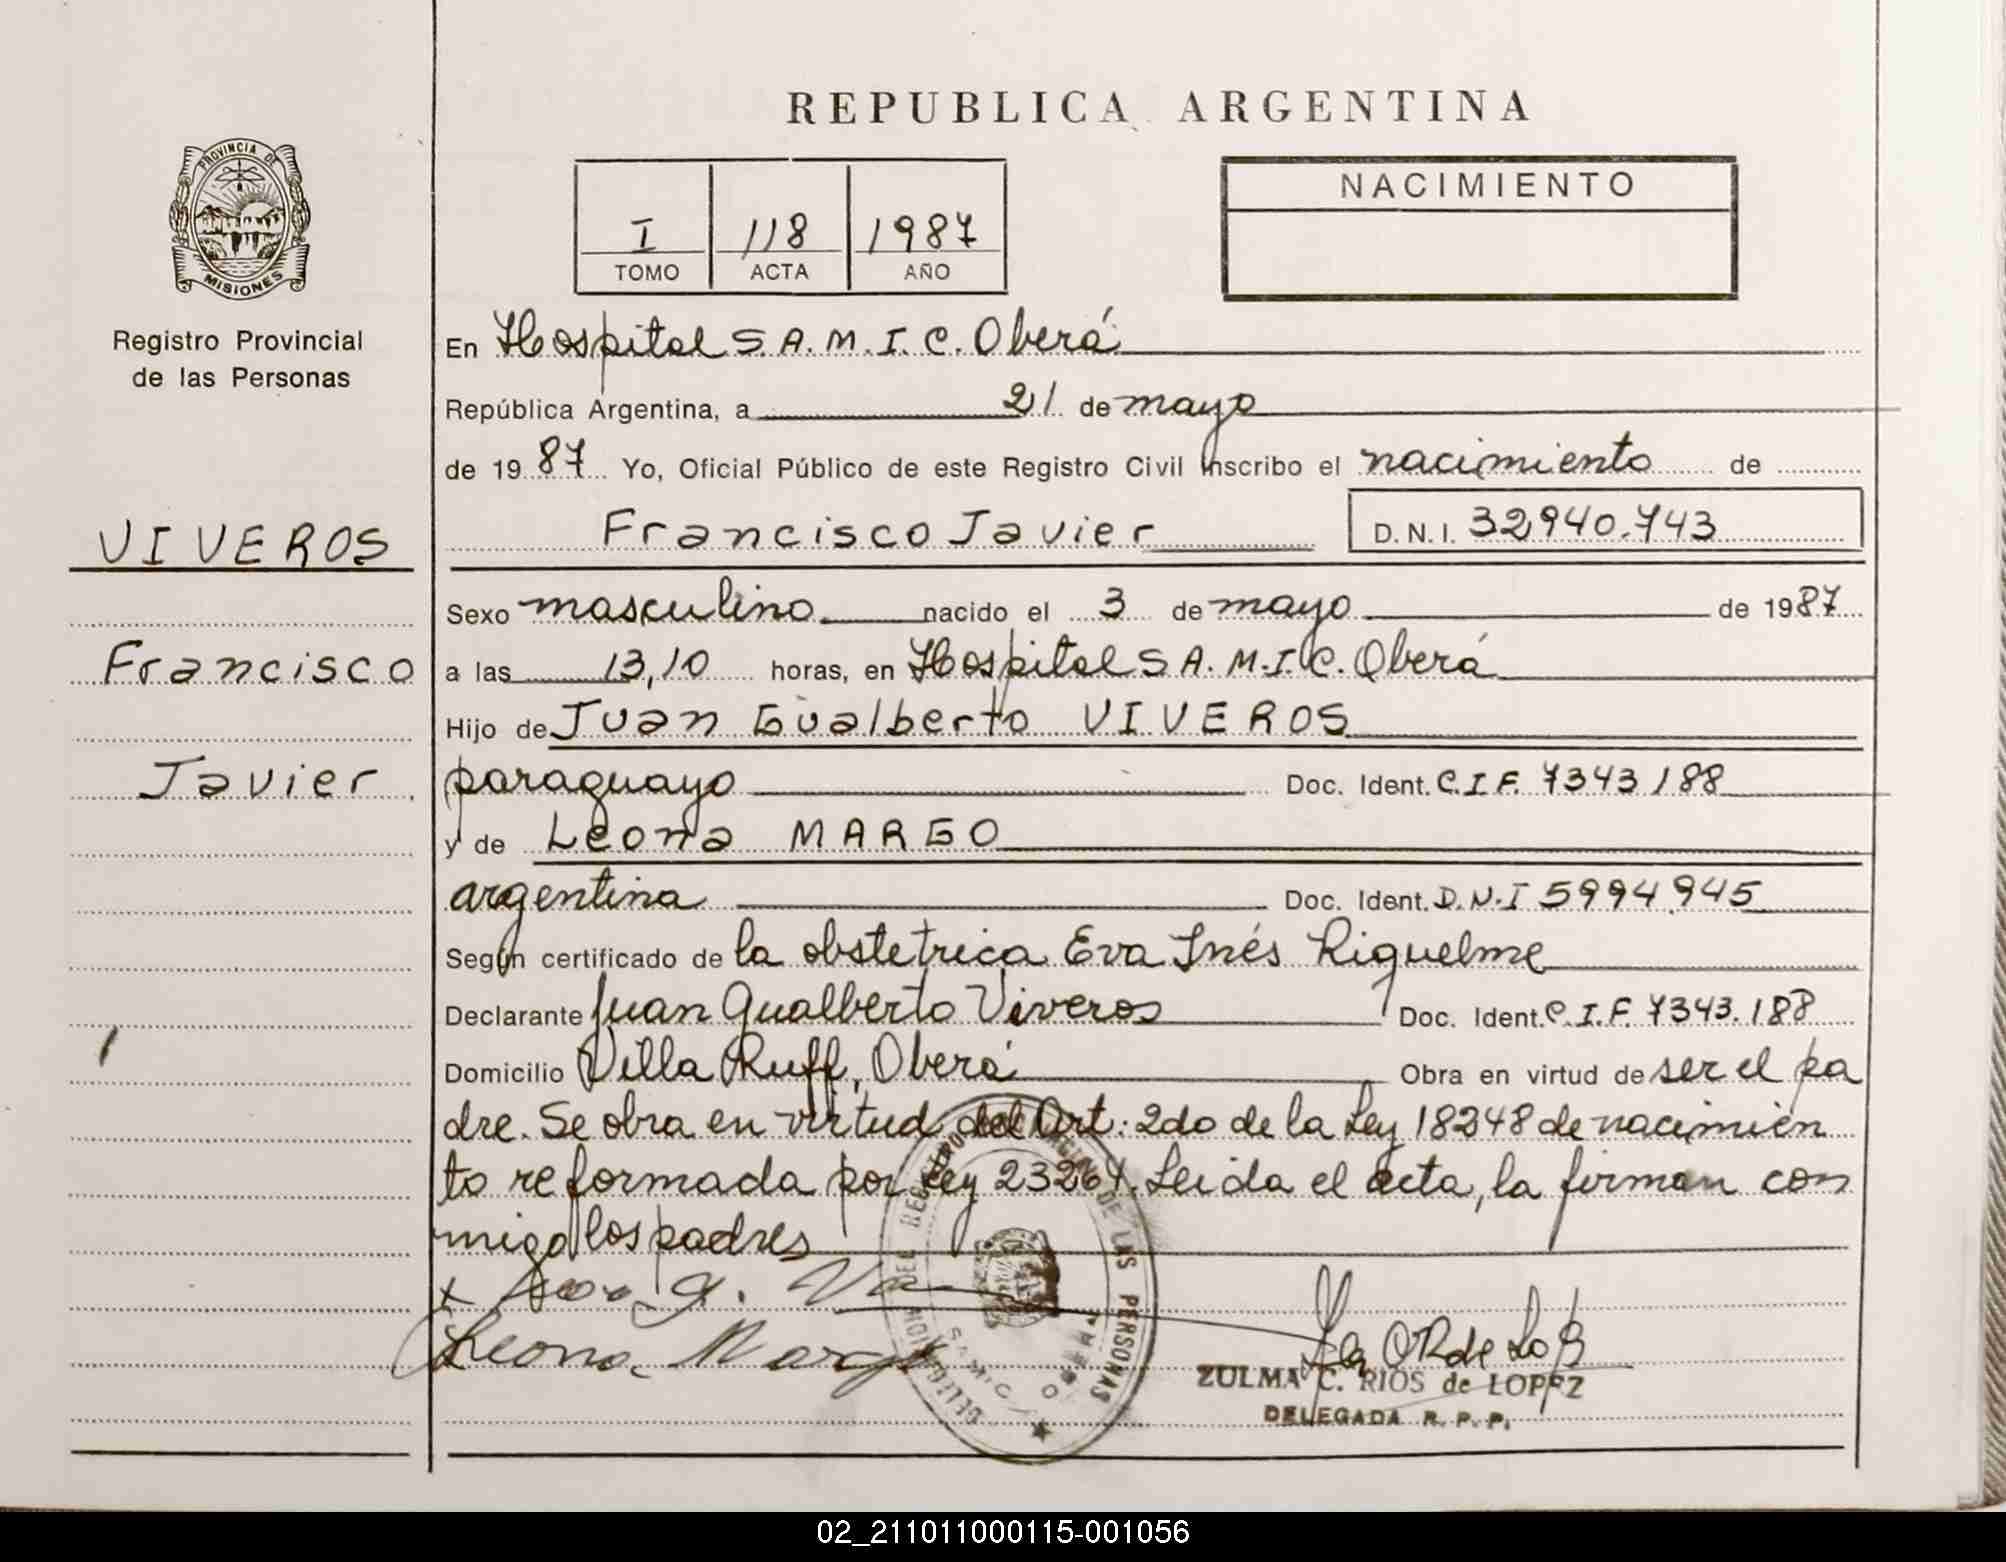 REPUBLICA ARGENTINA
PROVINCIA DE
MISIONES
Registro Provincial
de las Personas
I 118 1987
TOMO ACTA AÑO
NACIMIENTO
En Hospital S.A.M.I.C. Oberá
República Argentina, a 21 de mayo
de 1987 Yo, Oficial Público de este Registro Civil Inscribo el nacimiento de
VIVEROS
Francisco Javier D.N.I. 32940.743
Sexo masculino nacido el 3 de mayo de 1987
Francisco
a las 13,10 horas, en Hospital S A.M.I.C. Oberá
Hijo de Juan Gualberto VIVEROS
Javier
paraguayo Doc. Ident. C.I.F. 7343188
y de Leona MARGO
argentina Doc. Ident. D.N.I 5994.945
Según certificado de la obstetrica Eva Inés Riquelme
Declarante Juan Gualberto Viveros Doc. Ident. C.I.F. 7343.188
Domicilio Villa Ruff, Oberá Obra en virtud de ser el pa
dre. Se obra en virtud del Art: 2do de la Ley 18248 de nacimien
to reformada por Ley 23264. Leida el acta, la firman con
migo los padres
Leona Margo
DELEGACION DEL REGISTRO DE LAS PERSONAS
SAMIC OBERA
ZULMA C. RIOS de LOPEZ
DELEGADA R. P. P.
02_211011000115-001056